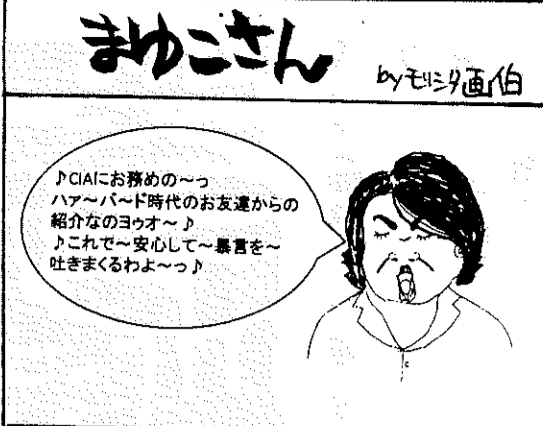 まゆこさん
byモリシタ画伯
♪CIAにお務めの～っ
ハァ～バ～ド時代のお友達からの
紹介なのヨゥオ～♪
♪これで～安心して～暴言を～
吐きまくるわよ～っ♪